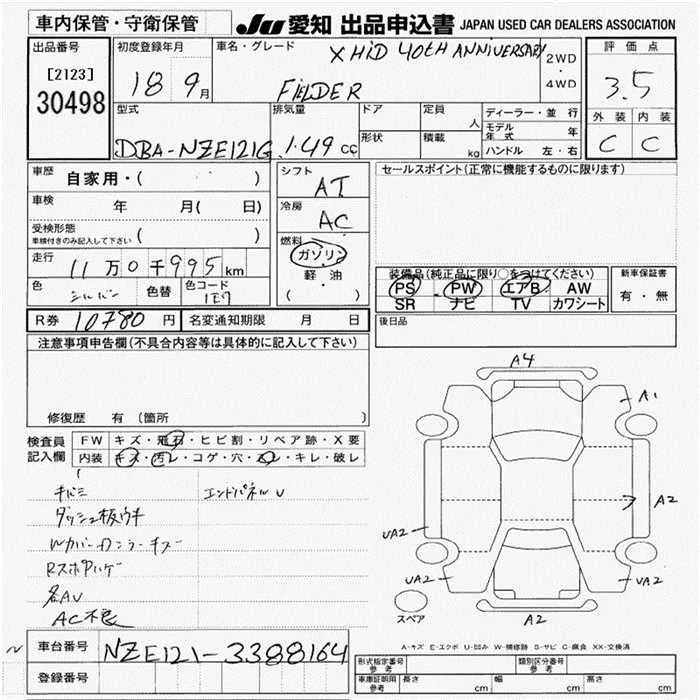 車内保管・守衛保管
JU 愛知 出品申込書 JAPAN USED CAR DEALERS ASSOCIATION
出品番号
[2123]
30498
初度登録年月
18 9月
車名・グレード
X HID 40TH ANNIVERSARY
FIELDER
2WD
4WD
評価点
3.5
外装 内装
C C
型式
DBA-NZE121G
排気量
1.49cc
ドア
形状
定員 人
積載 kg
ディーラー・並行
モデル年式 年
ハンドル 左・右
車歴 自家用・( )
車検 年 月( 日)
受検形態
車検付きのみ記入して下さい ( )
走行 11万0千995km
色 シルバー 色替 色コード 1E7
シフト AT
冷房 AC
燃料
ガソリン
軽・油
( )
セールスポイント(正常に機能するものに限ります)
装備品(純正品に限り○をつけてください)
PS PW エアB AW
SR ナビ TV カワシート
新車保証書
有・無
後日品
R券 10780円 名変通知期限 月 日
注意事項申告欄(不具合内容等は具体的に記入して下さい)
修復歴 有(箇所
検査員記入欄
FW キズ・飛石・ヒビ割・リペア跡・X要
内装 キズ・汚レ・コゲ・穴・スレ・キレ・破レ
キバミ エンドパネルU
ダッシュ板ウキ
Wカバー カンラーキズ
Rスポ
各AU
AC不良
A4
A1
A2
UA2
UA2
UA2
A2
スペア
A-キズ E-エクボ U-凹み W-補修跡 S-サビ C-腐食 XX-交換済
車台番号 NZE121-3388164
登録番号
形式指定番号 参考
類別区分番号 参考
車庫証明用 参考 長さ cm 幅 cm 高さ cm